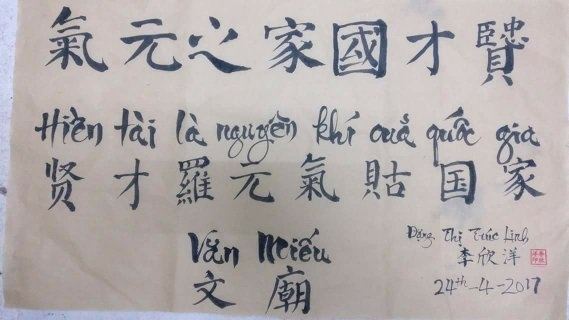 贒才國家之元氣
Hiền tài là nguyên khí của quốc gia
贤才羅元氣𧵑国家
Văn Miếu
文廟
Đặng Thị Trúc Linh
李欣洋
24th-4-2017